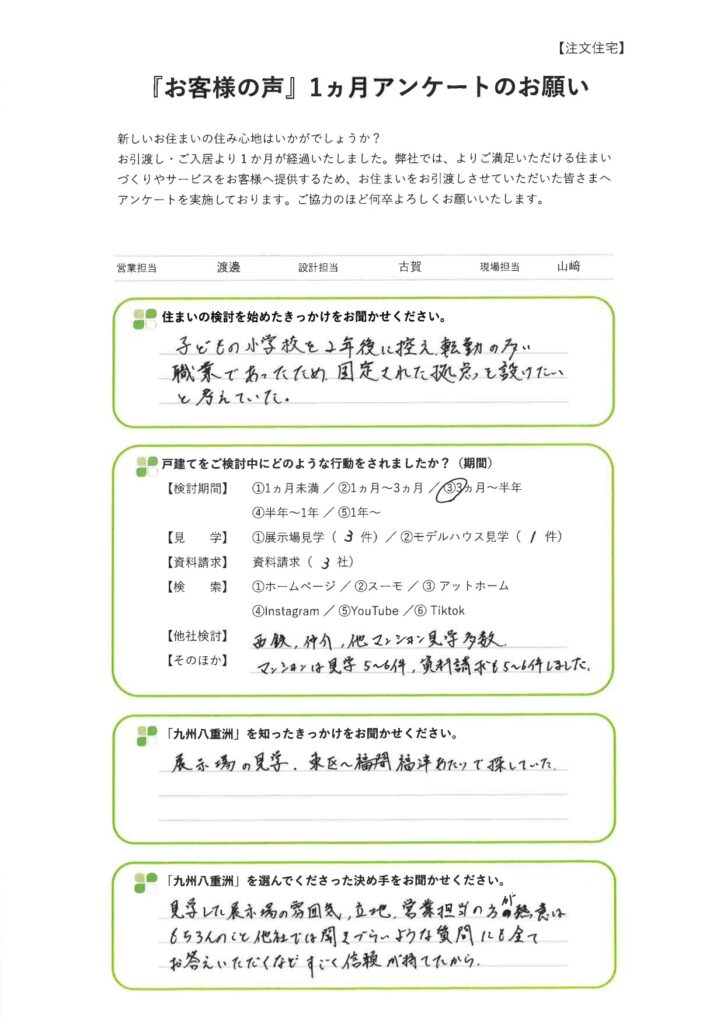 【注文住宅】
『お客様の声』1ヵ月アンケートのお願い
新しいお住まいの住み心地はいかがでしょうか？
お引渡し・ご入居より１か月が経過いたしました。弊社では、よりご満足いただける住まい
づくりやサービスをお客様へ提供するため、お住まいをお引渡しさせていただいた皆さまへ
アンケートを実施しております。ご協力のほど何卒よろしくお願いいたします。
営業担当 渡邊 設計担当 古賀 現場担当 山﨑
住まいの検討を始めたきっかけをお聞かせください。
子どもの小学校を2年後に控え、転勤の多い
職業であったため、固定された拠点を設けたい
と考えていた。
戸建てをご検討中にどのような行動をされましたか？（期間）
【検討期間】 ①1ヵ月未満 ／ ②1ヵ月～3ヵ月 ／ ③3ヵ月～半年
④半年～1年 ／ ⑤1年～
【見　学】 ①展示場見学（ 3 件）／ ②モデルハウス見学（ 1 件）
【資料請求】 資料請求（ 3 社）
【検　索】 ①ホームページ ／ ②スーモ ／ ③ アットホーム
④Instagram ／ ⑤YouTube ／⑥ Tiktok
【他社検討】 西鉄, 仲介, 他マンション見学多数.
【そのほか】 マンションは見学5~6件, 資料請求も5~6件しました.
「九州八重洲」を知ったきっかけをお聞かせください。
展示場の見学. 東区~福間 福津あたりで探していた.
「九州八重洲」を選んでくださった決め手をお聞かせください。
見学した展示場の雰囲気, 立地, 営業担当の方が熱意は
もちろんのこと他社では聞きづらいような質問にも全て
お答えいただくなどすごく信頼が持てたから.